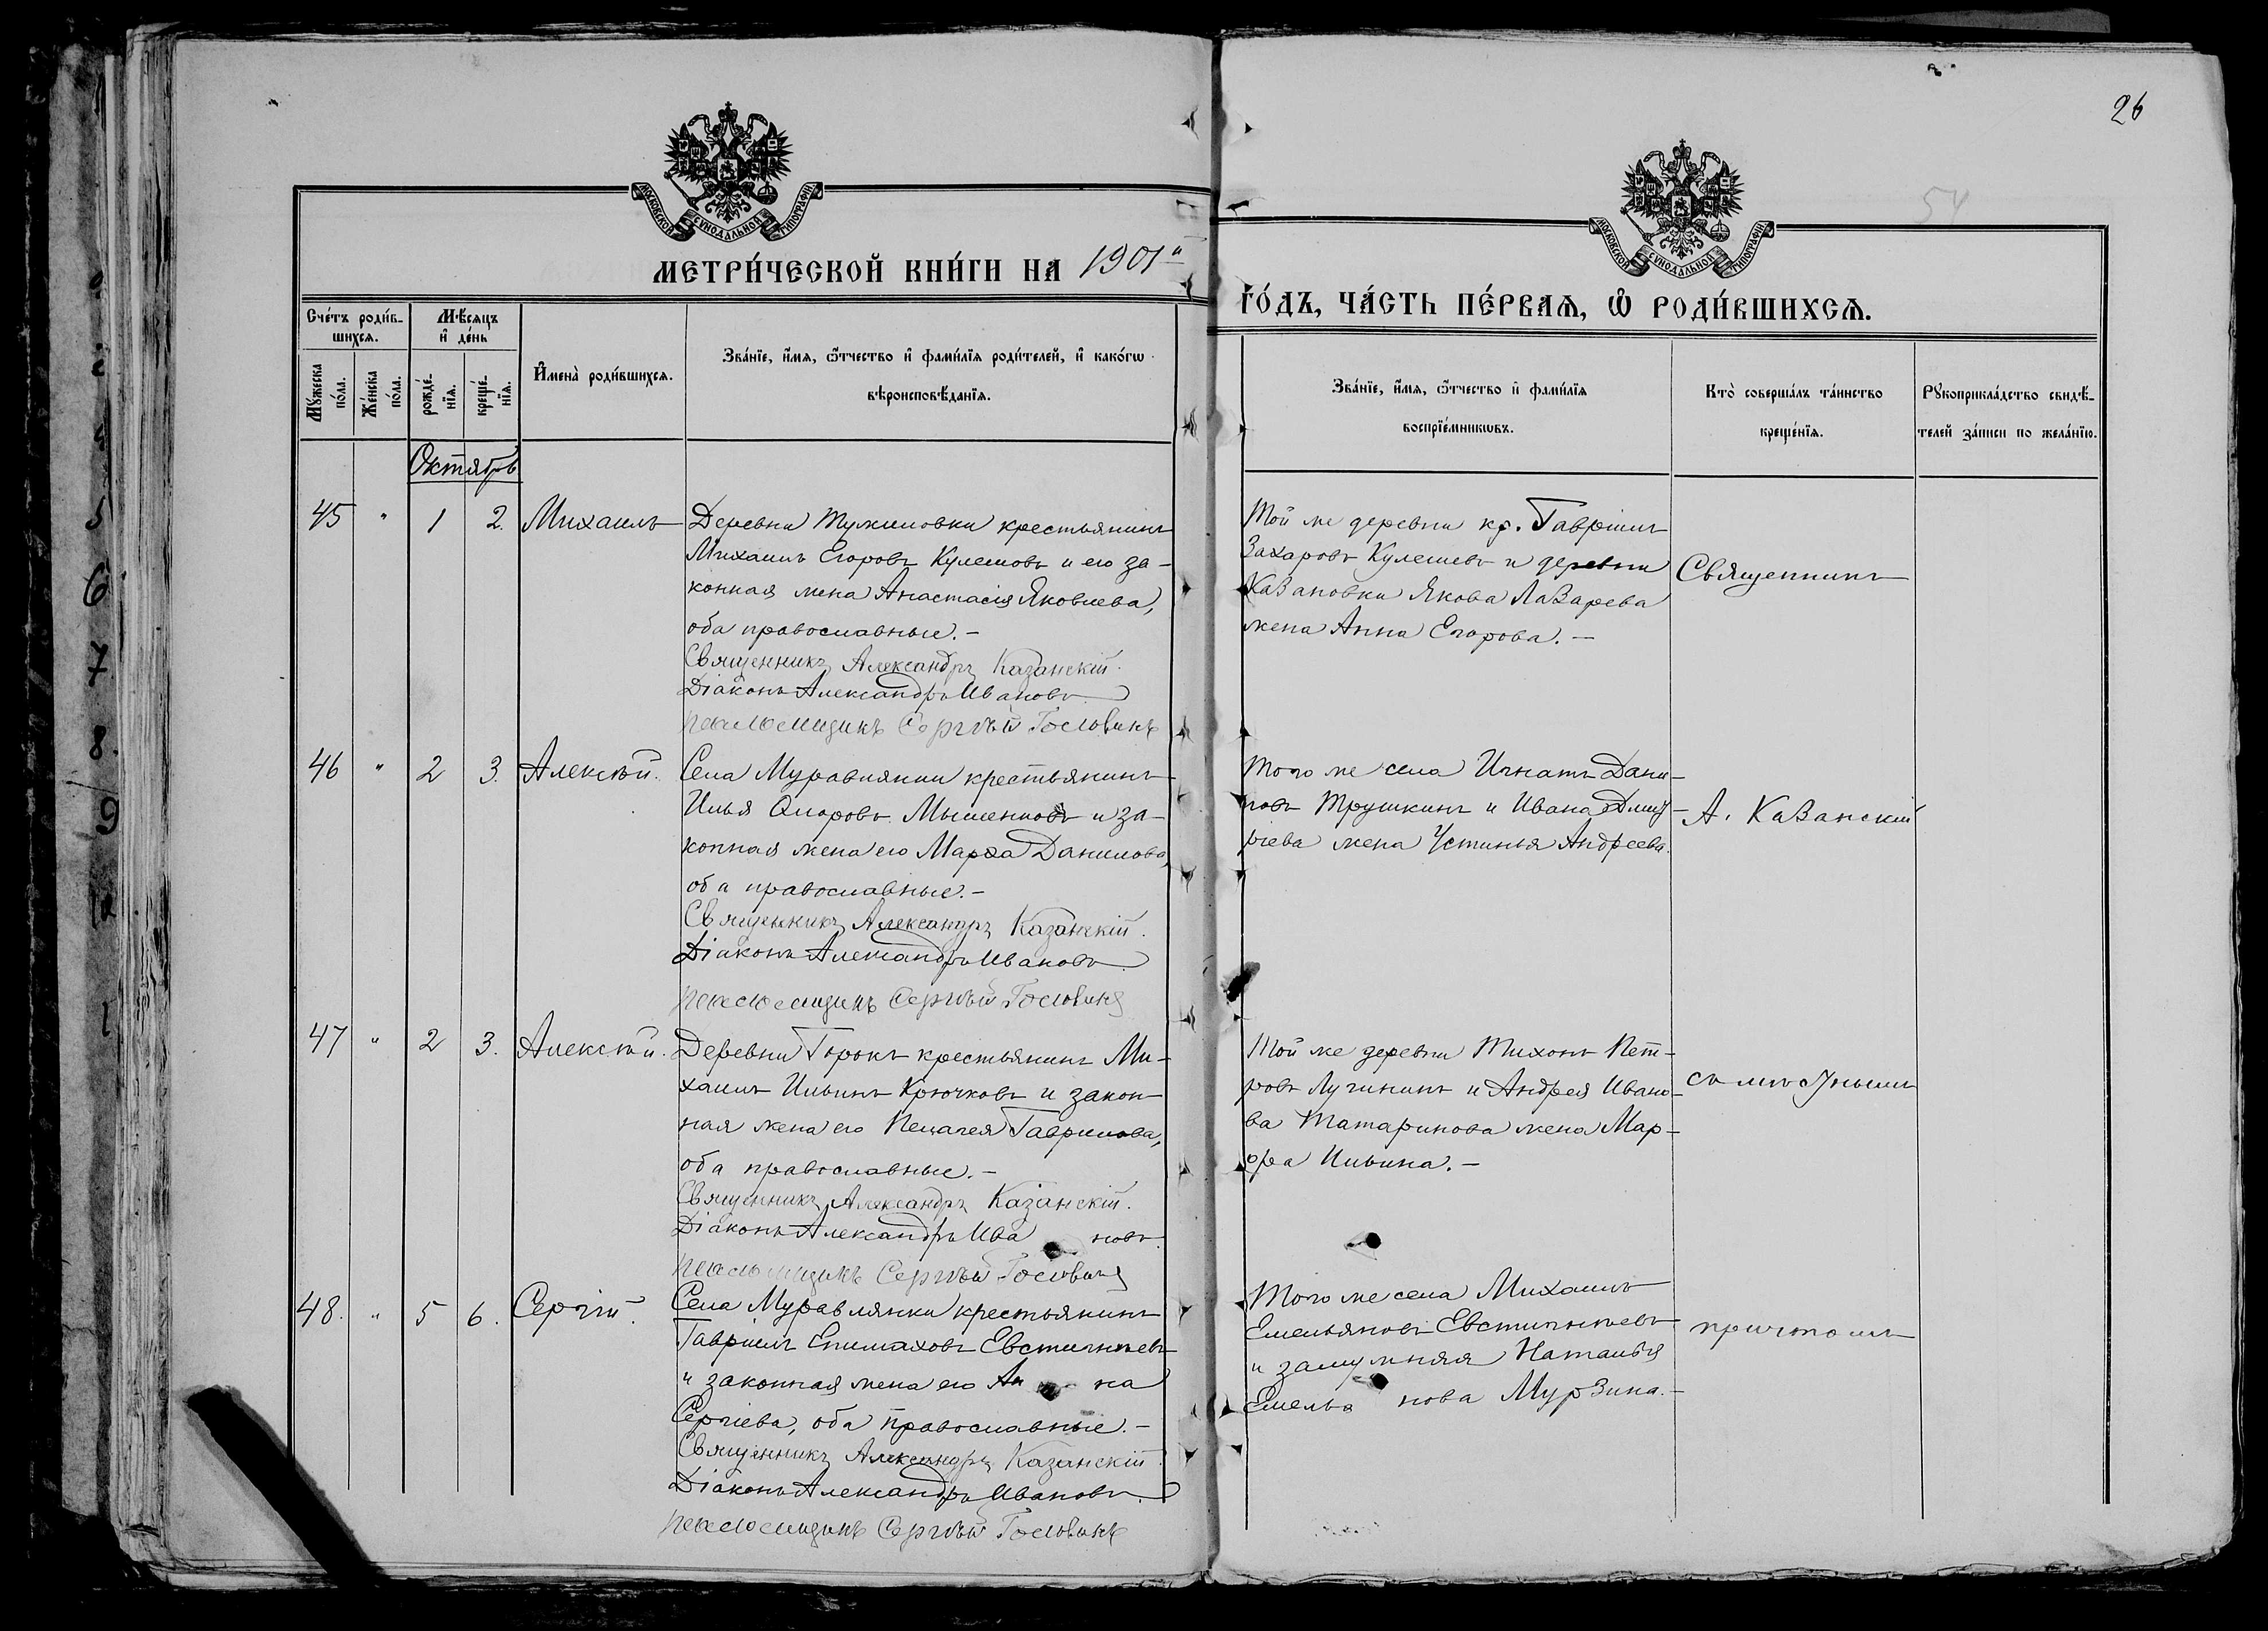 26
54
МОСКОВСКОЙ СѴНОДАЛЬНОЙ ТИПОГРАФІИ
МОСКОВСКОЙ СѴНОДАЛЬНОЙ ТИПОГРАФІИ
МЕТРИ́ЧЕСКОЙ КНИ́ГИ НА 1901й
ГО́ДЪ, ЧА́СТЬ ПЕ́РВАѦ, Ѽ РОДИ́ВШИХСѦ.
Сче́тъ роди́в-
шихсѧ.
Мѣ́сѧцъ
и҆ де́нь
Мꙋ́жеска
по́ла.
Же́нска
по́ла.
рожде́-
нїѧ.
креще́-
нїѧ.
И҆мена̀ роди́вшихсѧ.
Зва́нїе, и҆́мѧ, ѻ҆́тчество и҆ фами́лїѧ роди́телей, и҆ како́гѡ
вѣроисповѣ́данїѧ.
Зва́нїе, и҆́мѧ, ѻ҆́тчество и҆ фами́лїѧ
воспрїе́мникѡвъ.
Кто̀ соверша́лъ та́инство
креще́нїѧ.
Рꙋкоприкла́дство свидѣ́-
телей за́писи по жела́нїю.
Октябрь
45 " 1 2. Михаилъ
Деревни Тужиловки крестьянинъ
Михаилъ Егоровъ Кулешовъ и его за-
конная жена Анастасія Яковлева,
оба православные.-
Священникъ Александръ Казанскій.
Діаконъ Александръ Ивановъ
псаломщикъ Сергѣй Головинъ
Той же деревни кр. Гавріилъ
Захаровъ Кулешевъ и деревни
Казановки Якова Лазарева
жена Анна Егорова.-
Священникъ
46 " 2 3. Алексѣй.
Села Муравлянки крестьянинъ
Илья Мышенковъ и за-
конная жена его Марѳа Данилова,
оба православные.-
Священникъ Александръ Казанскій.
Діаконъ Александръ Ивановъ
псаломщикъ Сергѣй Головинъ
Того же села Игнатъ Дани-
ловъ Трушкинъ и Ивана Дмит-
ріева жена Устинья Андреева.
А. Казанскій
47 " 2 3. Алексѣй.
Деревни Горокъ крестьянинъ Ми-
хаилъ Ильинъ Крючковъ и закон-
ная жена его Пелагея Гаврилова,
оба православные.-
Священникъ Александръ Казанскій.
Діаконъ Александръ Ивановъ.
псаломщикъ Сергѣй Головинъ
Той же деревни Тихонъ Пет-
ровъ Лучининъ и Андрея Ивано-
ва Татаринова жена Мар-
ѳа Ильина.-
съ мѣстнымъ
48. " 5 6. Сергій.
Села Муравлянки крестьянинъ
Гавріилъ Епимаховъ Евстигнѣевъ
и законная жена его Анна
Сергіева, оба православные.-
Священникъ Александръ Казанскій
Діаконъ Александръ Ивановъ.
псаломщикъ Сергѣй Головинъ
Того же села Михаилъ
Емельяновъ Евстигнѣевъ
и замужняя Наталья
Емельянова Мурзина.-
причтомъ